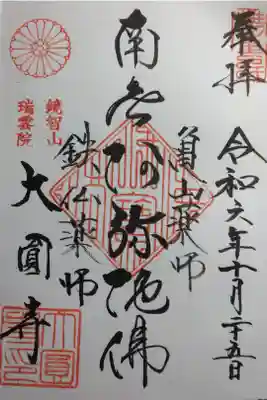 奉拝
令和六年十月二十五日
山薬師
南無阿彌陀佛
鉄仏薬師
鏡智山
瑞雲院
大圓寺